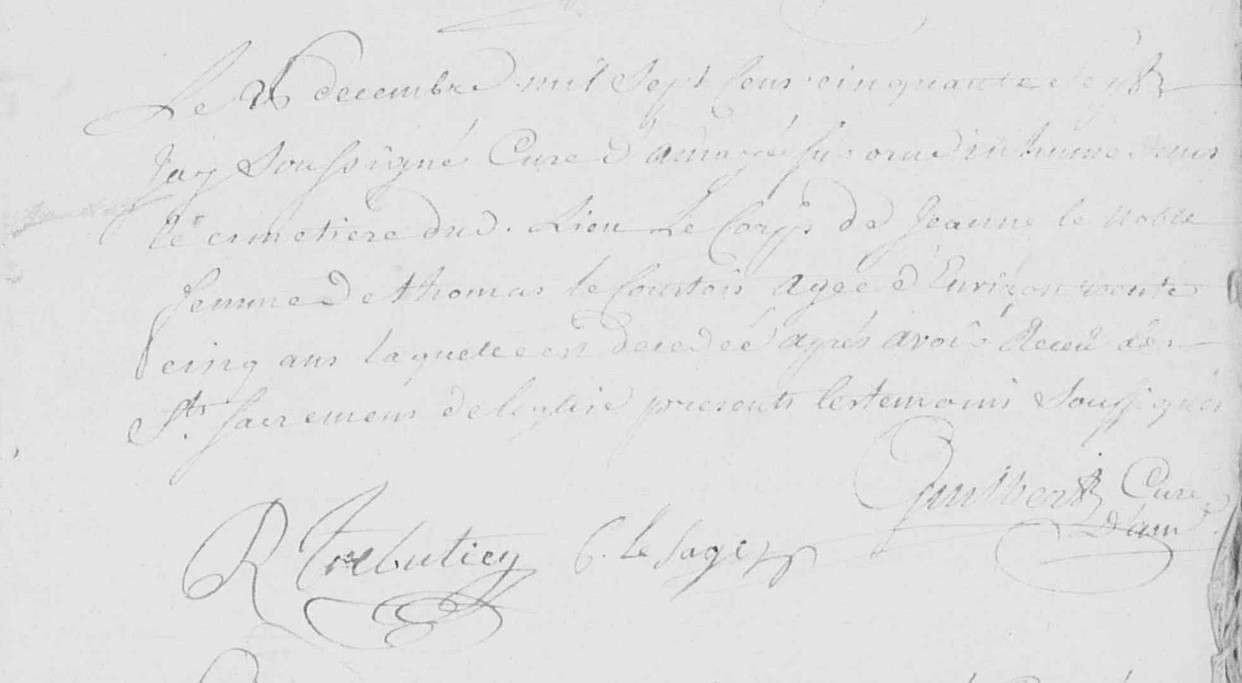 Le 26 decembre mil Sept Cens cinquante et sept
Jay Soussigné Curé d'amayé sur orne inhumé dans
le cimetiere dud. Lieu Le Corps de Jeanne le noble
femme de thomas le Courtois agée d'Environ trente
cinq ans laquelle est decedée aprés avoir Receu les
Sts. sacremens de leglise presents les temoins Soussignés
Guilbert Curé
d'am
R Trebutien C. le sage